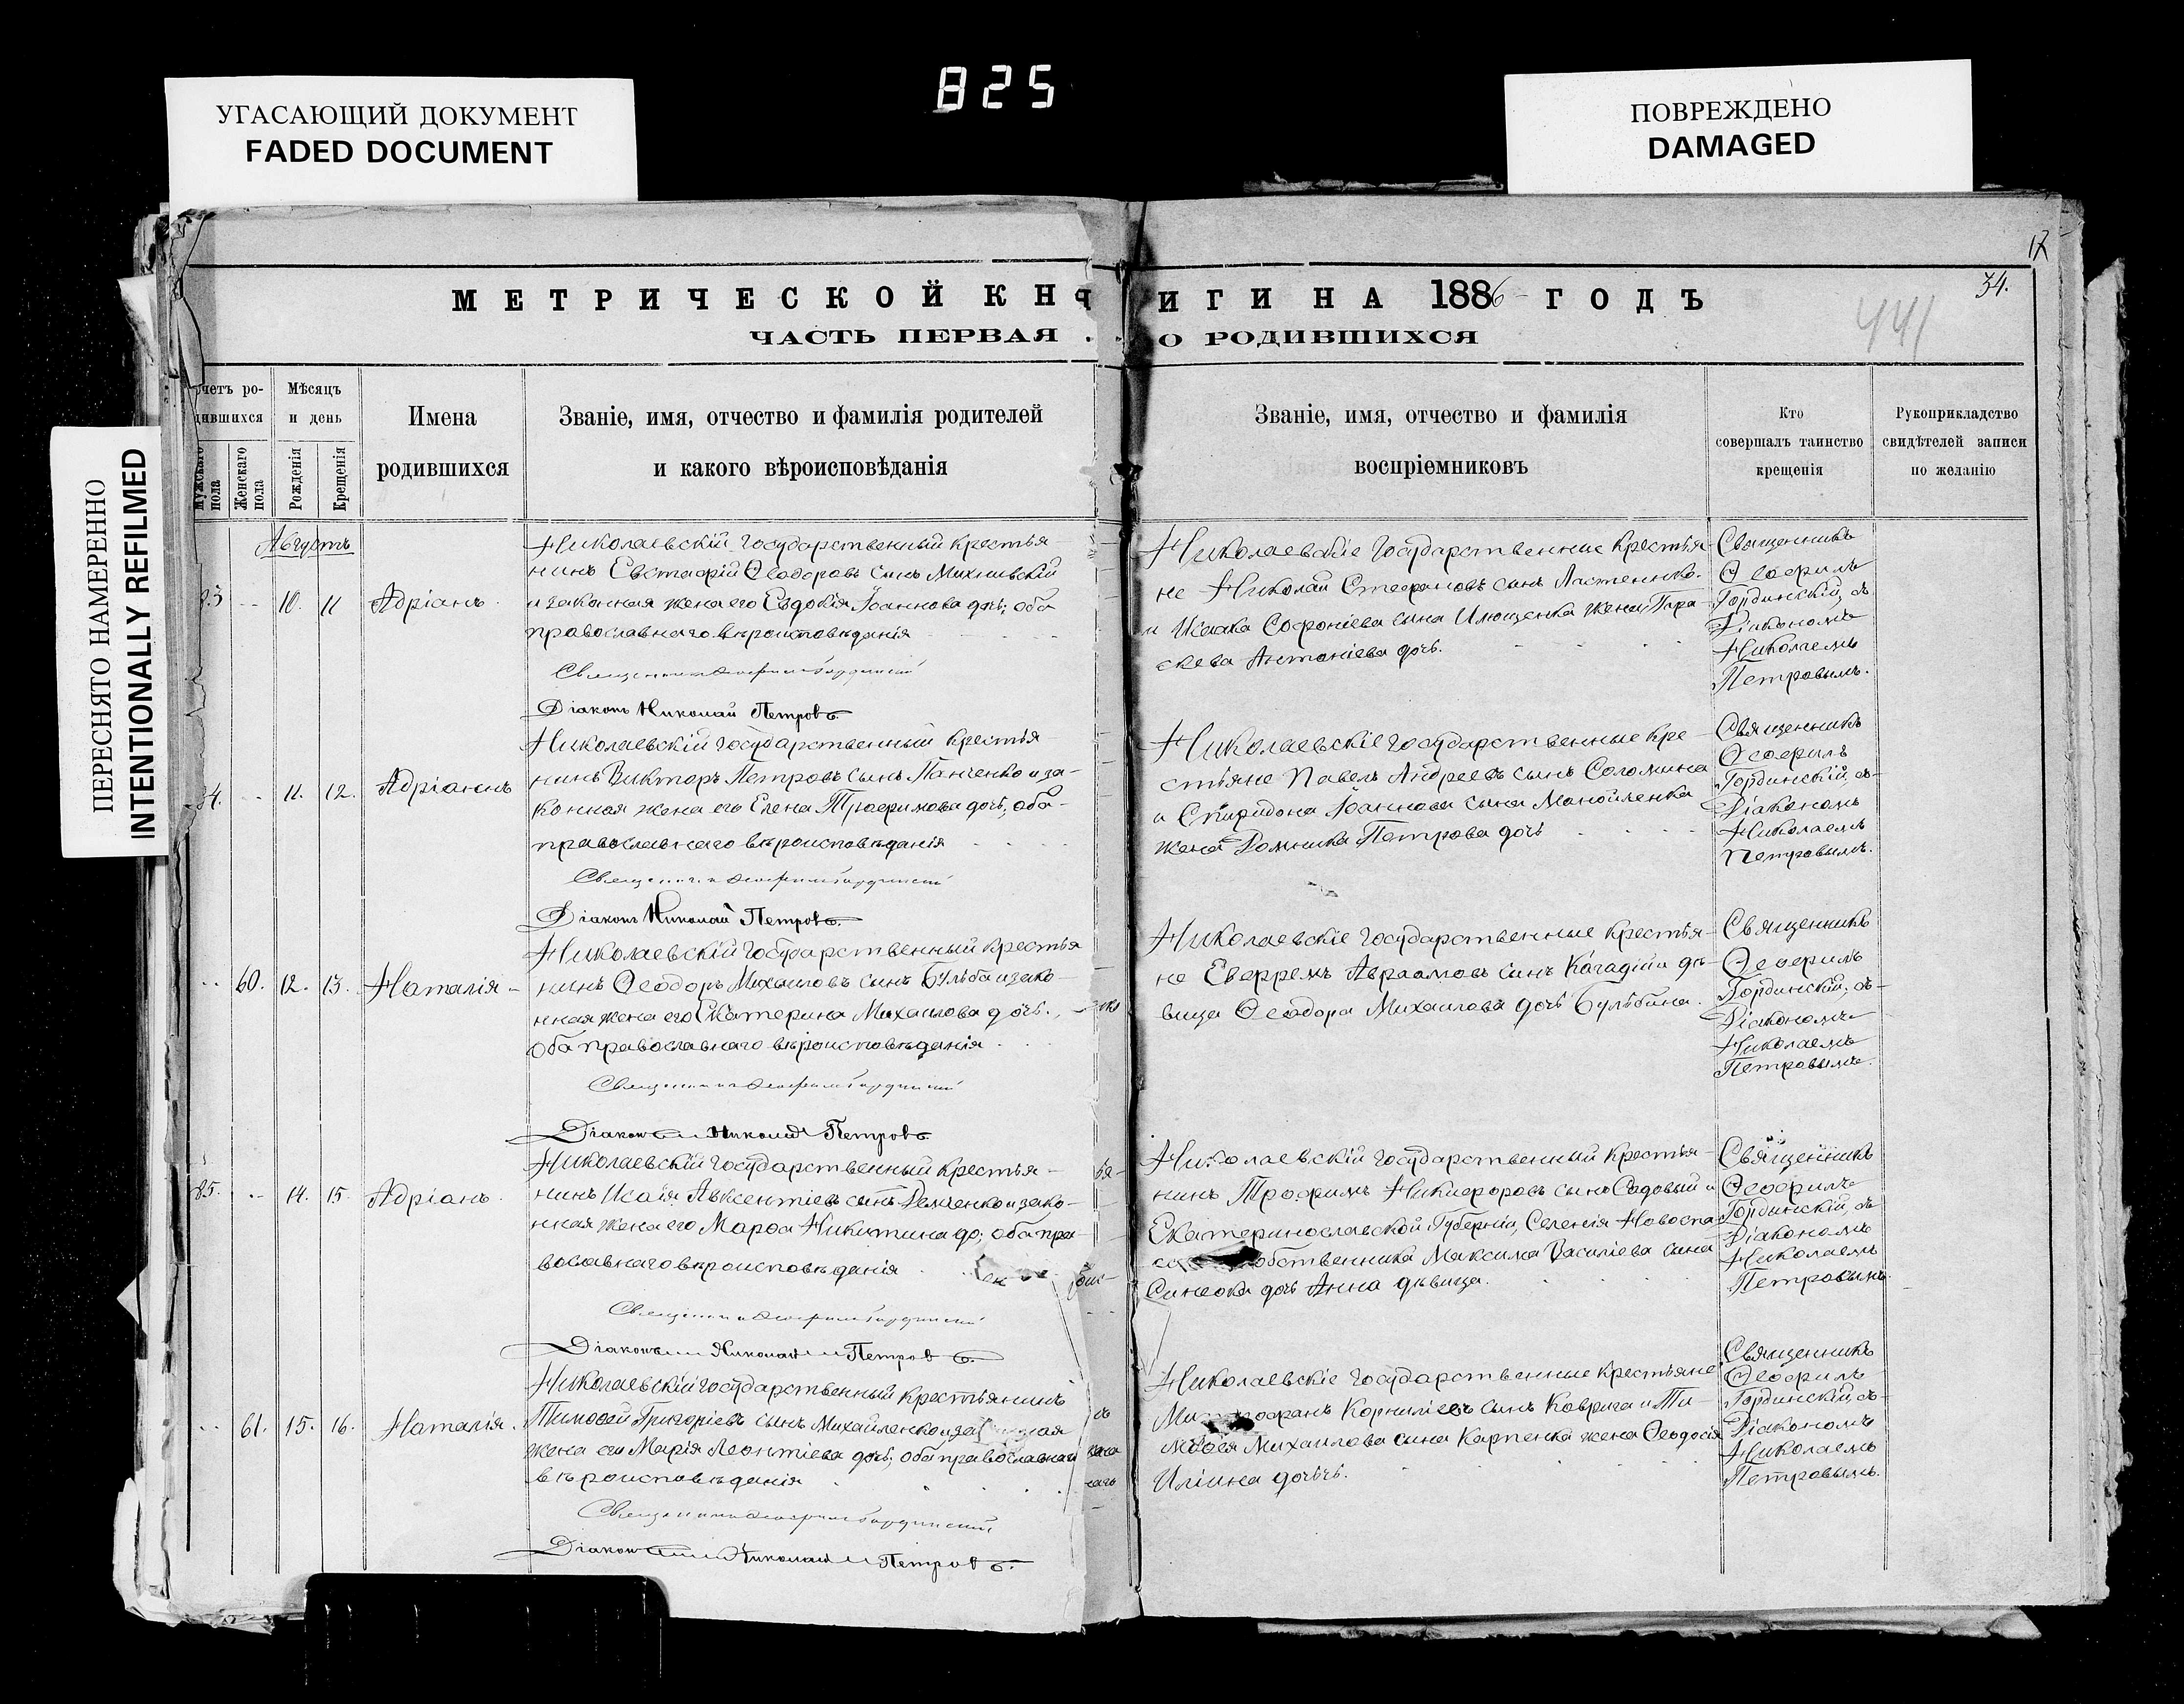 825
УГАСАЮЩИЙ ДОКУМЕНТ
FADED DOCUMENT
ПОВРЕЖДЕНО
DAMAGED
ПЕРЕСНЯТО НАМЕРЕННО
INTENTIONALLY REFILMED
17
34.
441
МЕТРИЧЕСКОЙ КН
ИГИ НА 1886 ГОДЪ
ЧАСТЬ ПЕРВАЯ .
О РОДИВШИХСЯ
четъ ро-
дившихся
Мужскаго пола
Женскаго пола
Мѣсяцъ
и день
Рожденія
Крещенія
Имена
родившихся
Званіе, имя, отчество и фамилія родителей
и какого вѣроисповѣданія
Званіе, имя, отчество и фамилія
воспріемниковъ
Кто
совершалъ таинство
крещенія
Рукоприкладство
свидѣтелей записи
по желанію
Августъ
83 10. 11 Адріанъ
Николаевскій государственный крестья-
нинъ Евстафій Ѳеодоровъ сынъ
и законная жена его Евдокія Іоаннова дочь; оба
православнаго вѣроисповѣданія
Діаконъ Николай Петровъ
Николаевскіе государственные крестья-
не Николай Стефановъ сынъ
и Исаака Софоніева сына Илющенка жена Пара-
скева Антоніева дочь.
Священникъ
Ѳеофилъ
Гординскій, съ
Діакономъ
Николаемъ
Петровымъ.
84. 11. 12. Адріанъ
Николаевскій государственный крестья-
нинъ Викторъ Петровъ сынъ Панченко и за-
конная жена его Елена Трофимова дочь; оба
православнаго вѣроисповѣданія
Діаконъ Николай Петровъ
Николаевскіе государственные кре-
стьяне Павелъ Андреевъ сынъ Соломина
и Спиридона Іоаннова сына Манойленка
жена Домника Петрова дочь
Священникъ
Ѳеофилъ
Гординскій, съ
Діакономъ
Николаемъ
Петровымъ.
60. 12. 13. Наталія
Николаевскій государственный крестья
нинъ Ѳеодоръ Михаиловъ сынъ Бульба и зако-
нная жена его Екатерина Михаилова дочь.,
оба православнаго вѣроисповѣданія
Діаконъ Николай Петровъ
Николаевскіе государственные крестья-
не Евфремъ Авраамовъ сынъ и дѣ-
вица Ѳеодора Михаилова дочь Бульбина.
Священникъ
Ѳеофилъ
Гординскій, съ
Діакономъ
Николаемъ
Петровымъ.
85. 14. 15. Адріанъ
Николаевскій государственный крестья-
нинъ Исаія Авксентіевъ сынъ Демченко и зако-
нная жена его Марѳа Никитина до; оба пра-
вославнаго вѣроисповѣданія
Діаконъ Николай Петровъ
Николаевскій государственный крестья-
нинъ Трофимъ Никифоровъ сынъ Садовый и
Екатеринославской Губерніи, Селенія Новоспа
собственника Максима Василіева сына
Синеока дочь Анна дѣвица.
Священникъ
Ѳеофилъ
Гординскій, съ
Діакономъ
Николаемъ
Петровымъ.
61. 15. 16. Наталія.
Николаевскій государственный крестьянинъ
Тимоѳей Григоріевъ сынъ Михайленко и за
жена его Марія Леонтіева дочь; оба православнаго
вѣроисповѣданія
Діаконъ Николай Петровъ.
Николаевскіе государственные крестьяне
Митрофанъ Корниліевъ сынъ Коврига и Ти-
моѳея Михаилова сына Карпенка жена Ѳеодосія
Иліина дочь.
Священникъ
Ѳеофилъ
Гординскій, съ
Діакономъ
Николаемъ
Петровымъ.